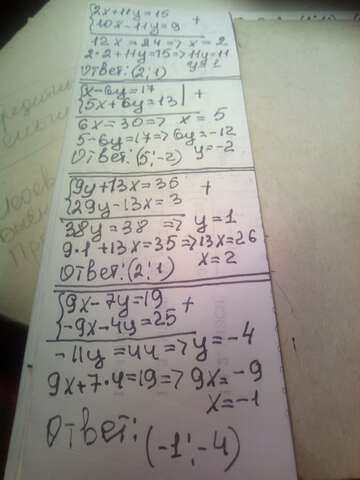 {2x+11y=15
{10x-11y=9 +
12x=24=> x=2
2·2+11y=15=>11y=11
y=1
Ответ:(2;1)
{x-6y=17
{5x+6y=13| +
6x=30=> x=5
5-6y=17=>6y=-12
Ответ:(5;-2) y=-2
{9y+13x=35 +
{29y-13x=3
38y=38 => y=1
9·1+13x=35=>13x=26
Ответ:(2;1) x=2
{9x-7y=19 +
{-9x-4y=25
-11y=44=>y=-4
9x+7·4=19=>9x=-9
x=-1
Ответ:(-1;-4)